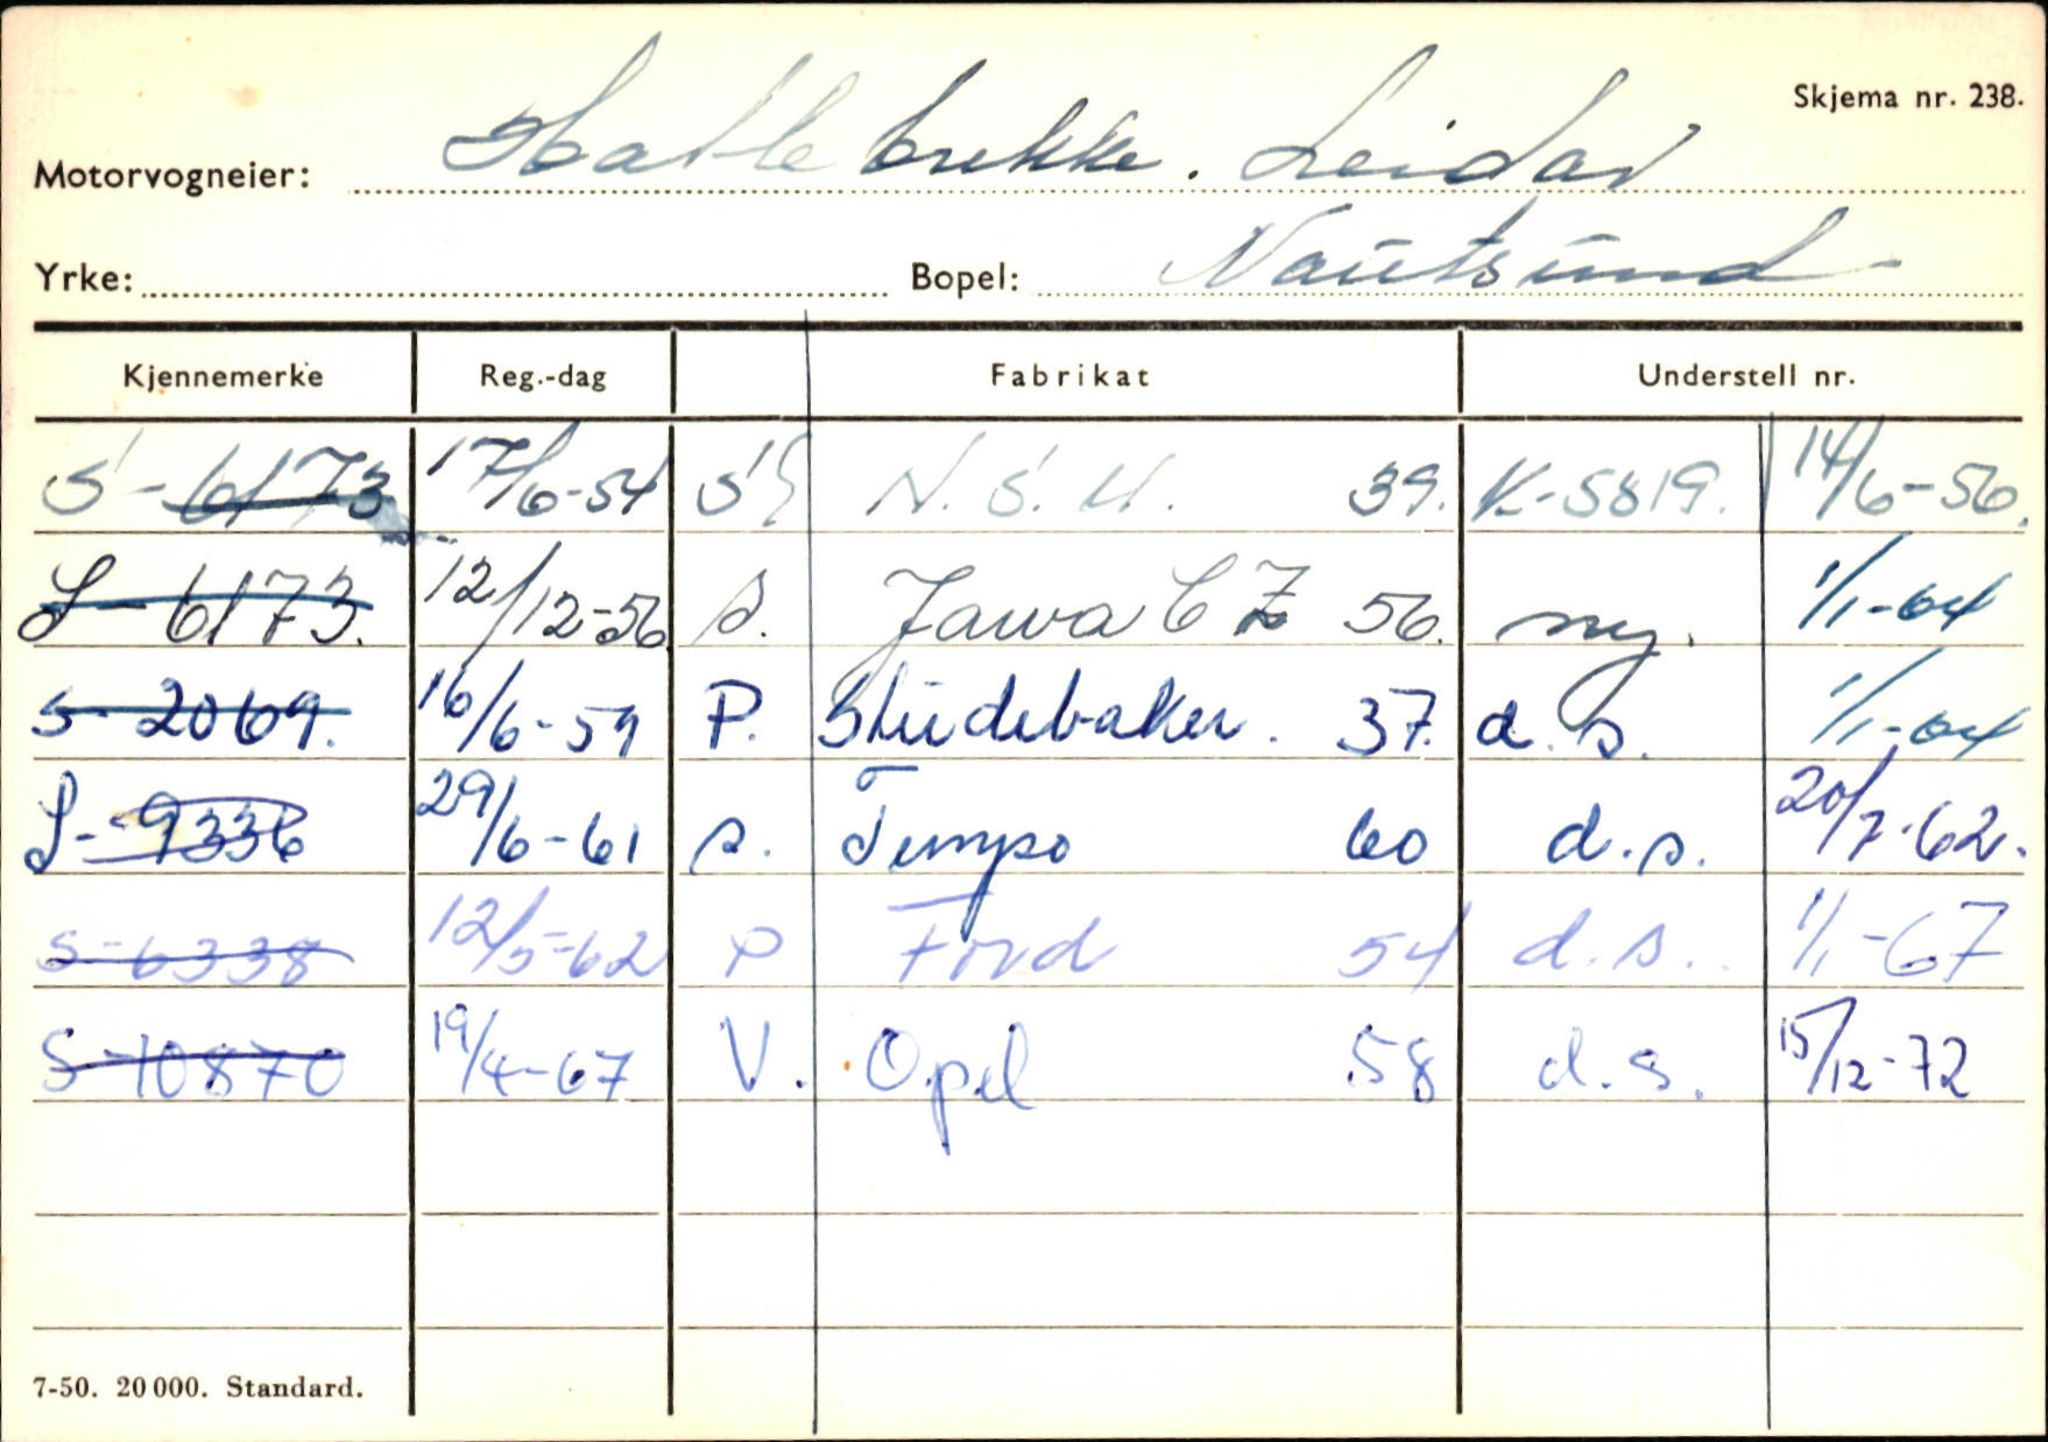 Skjema nr. 238.
Motorvogneier: Hatlebrekke. Leidar
Yrke: Bopel: Nautsund
Kjennemerke Reg.-dag Fabrikat Understell nr.
S-6173 17/6-54 S N.S.U. 39. K-5819. 14/6-56.
S-6173. 12/12-56 s. Jawa CZ 56. ny. 1/1-64
S-2069. 16/6-59 P. Studebaker. 37. d.s. 1/1-64
S-9336 29/6-61 s. Tempo 60 d.s. 20/7-62.
S-6338 12/5-62 P Ford 54 d.s. 1/1-67
S-10870 19/4-67 V. Opel 58 d.s. 15/12-72
7-50. 20 000. Standard.